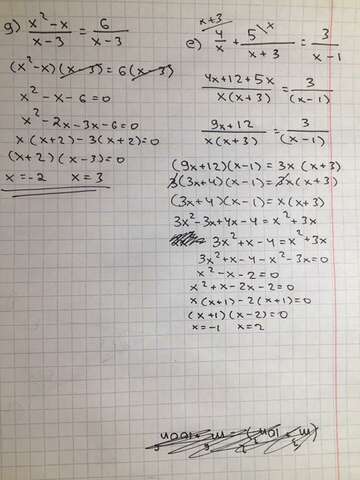 g) (x²-x)/(x-3) = 6/(x-3)
(x²-x)(x-3) = 6(x-3)
x²-x-6=0
x²-2x-3x-6=0
x(x+2)-3(x+2)=0
(x+2)(x-3)=0
x=-2 x=3
e) x+3 4/x + 5\x/(x+3) = 3/(x-1)
(4x+12+5x)/(x(x+3)) = 3/(x-1)
(9x+12)/(x(x+3)) = 3/(x-1)
(9x+12)(x-1)=3x(x+3)
3(3x+4)(x-1)=3x(x+3)
(3x+4)(x-1)=x(x+3)
3x²-3x+4x-4=x²+3x
3x²+x-4=x²+3x
3x²+x-4-x²-3x=0
x²-x-2=0
x²+x-2x-2=0
x(x+1)-2(x+1)=0
(x+1)(x-2)=0
x=-1 x=2